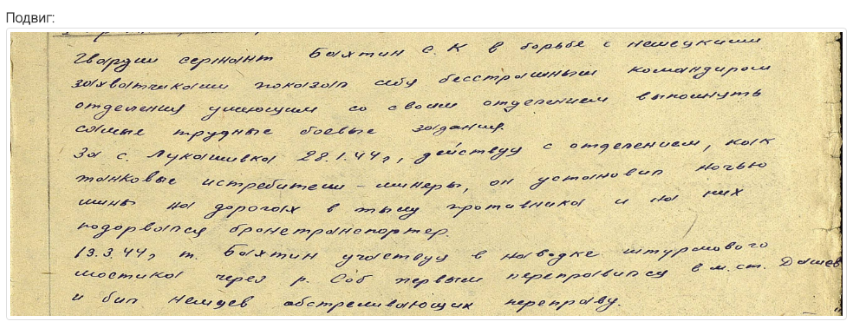 Подвиг:
Гвардии сержант Бахтин С. К в борьбе с немецкими
захватчиками показал себя бесстрашным командиром
отделения умеющим со своим отделением выполнять
самые трудные боевые задания.
За с. Лукашивка 28.1.44г, действуя с отделением, как
танковые истребители-минеры, он установил ночью
мины на дорогах в тылу противника и на них
подорвался бронетранспортер.
19.3.44г т. Бахтин участвуя в наводке штурмового
мостика через р. Соб первым переправился в м. ст. Дашев
и бил немцев обстреливающих переправу.